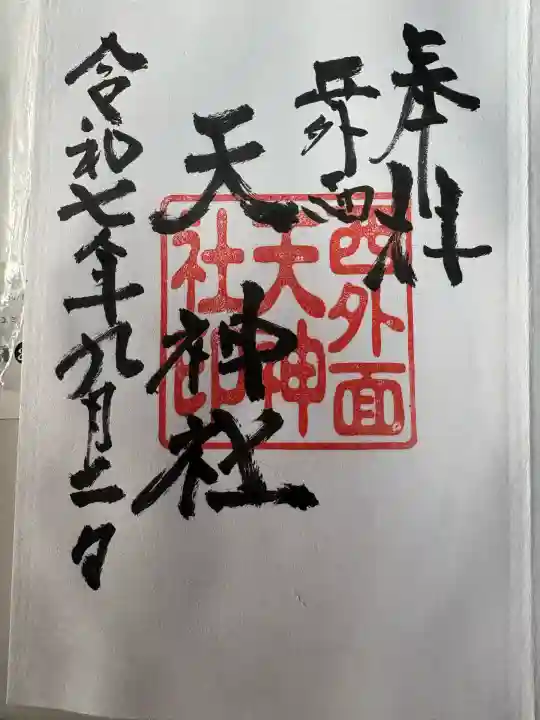 奉拝
西外面
天神社
西外面
天神
社印
令和七年九月二日